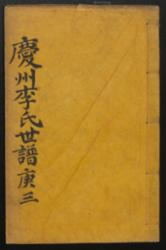 慶州李氏世譜 庚三